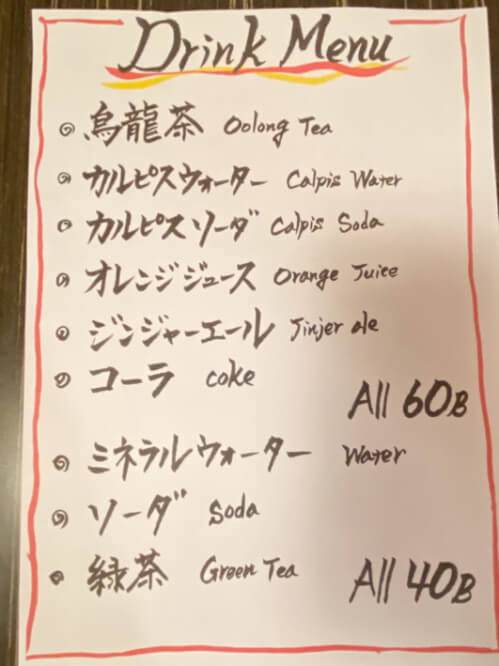 Drink Menu
烏龍茶 Oolong Tea
カルピスウォーター Calpis Water
カルピスソーダ Calpis Soda
オレンジジュース Orange Juice
ジンジャーエール Jinjer ale
コーラ coke
All 60B
ミネラルウォーター Water
ソーダ Soda
緑茶 Green Tea
All 40B